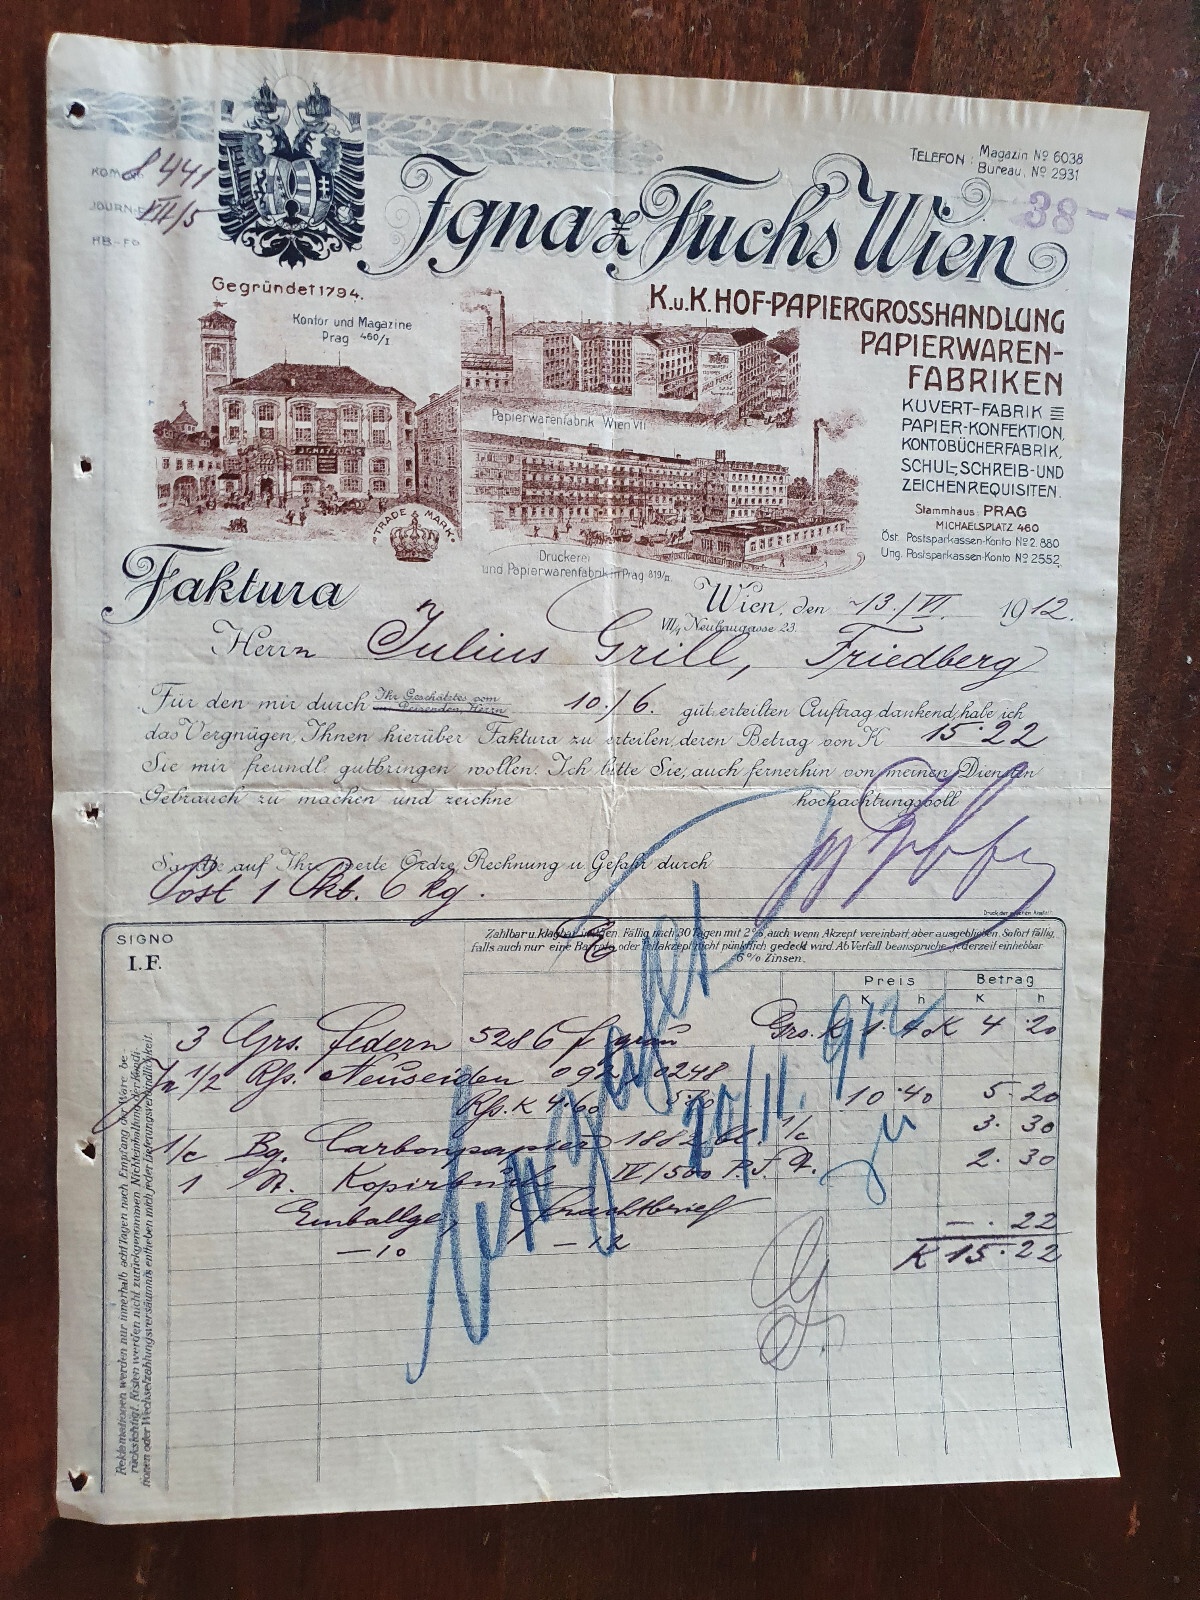 TELEFON: Magazin № 6038
Bureau. № 2931
KOM 8441
JOURN. VII/5
HB-FO
38--
Ignaz Fuchs Wien
Gegründet 1794.
K.u.K. HOF-PAPIERGROSSHANDLUNG
PAPIERWAREN-
FABRIKEN
Kontor und Magazine
Prag 460/I
IGNAZ FUCHS
Papierwarenfabrik Wien VII
KUVERT-FABRIK
PAPIER-KONFEKTION,
KONTOBÜCHERFABRIK,
SCHUL-, SCHREIB- UND
ZEICHENREQUISITEN.
Stammhaus PRAG
MICHAELSPLATZ 460
Öst. Postsparkassen-Konto № 2.880
Ung. Postsparkassen-Konto № 2552.
TRADE & MARK
Druckerei
und Papierwarenfabrik in Prag 819/II.
Faktura
Wien, den 13./VI. 1912.
VII/1 Neubaugasse 23.
Herrn Julius Grill, Friedberg
Für den mir durch Ihr Geschätztes vom 10./6. güt. erteilten Auftrag dankend, habe ich
Reisenden, Herrn
das Vergnügen, Ihnen hierüber Faktura zu erteilen, deren Betrag von K 15.22
Sie mir freundl. gutbringen wollen. Ich bitte Sie, auch fernerhin von meinen Diensten
Gebrauch zu machen und zeichne hochachtungsvoll
Sandte auf Ihre werte Ordre, Rechnung u. Gefahr durch
Post 1 Pkt. 6 kg.
SIGNO
I.F.
Zahlbar u. klagbar in Wien. Fällig nach 30 Tagen mit 2% auch wenn Akzept vereinbart, aber ausgeblieben. Sofort fällig,
falls auch nur eine Barrate oder Teilakzept nicht pünktlich gedeckt wird. Ab Verfall beanspruche jederzeit einhebbar
6% Zinsen.
Preis Betrag
K h K h
3 Grs. Federn 5286 f grau Grs. K 1.40 K 4.20
1/2 Rs. Neuseiden 0248
Rs. K 4.60 5.80 10.40 5.20
1/c Bg. Carbonpapier 1882 bl. 1/c 3.30
1 St. Kopirbuch IV/500 P.F. St. 2.30
Emballge, Frachtbrief
—10 —12 —.22
K 15.22
20/11. 912
Reklamationen werden nur innerhalb acht Tagen nach Empfang der Ware be-
rücksichtigt. Kisten werden nicht zurückgenommen. Nichteinhaltung der Kondi-
tionen oder Wechselzahlungsversäumnis entheben mich jeder Lieferungsverbindlichkeit.